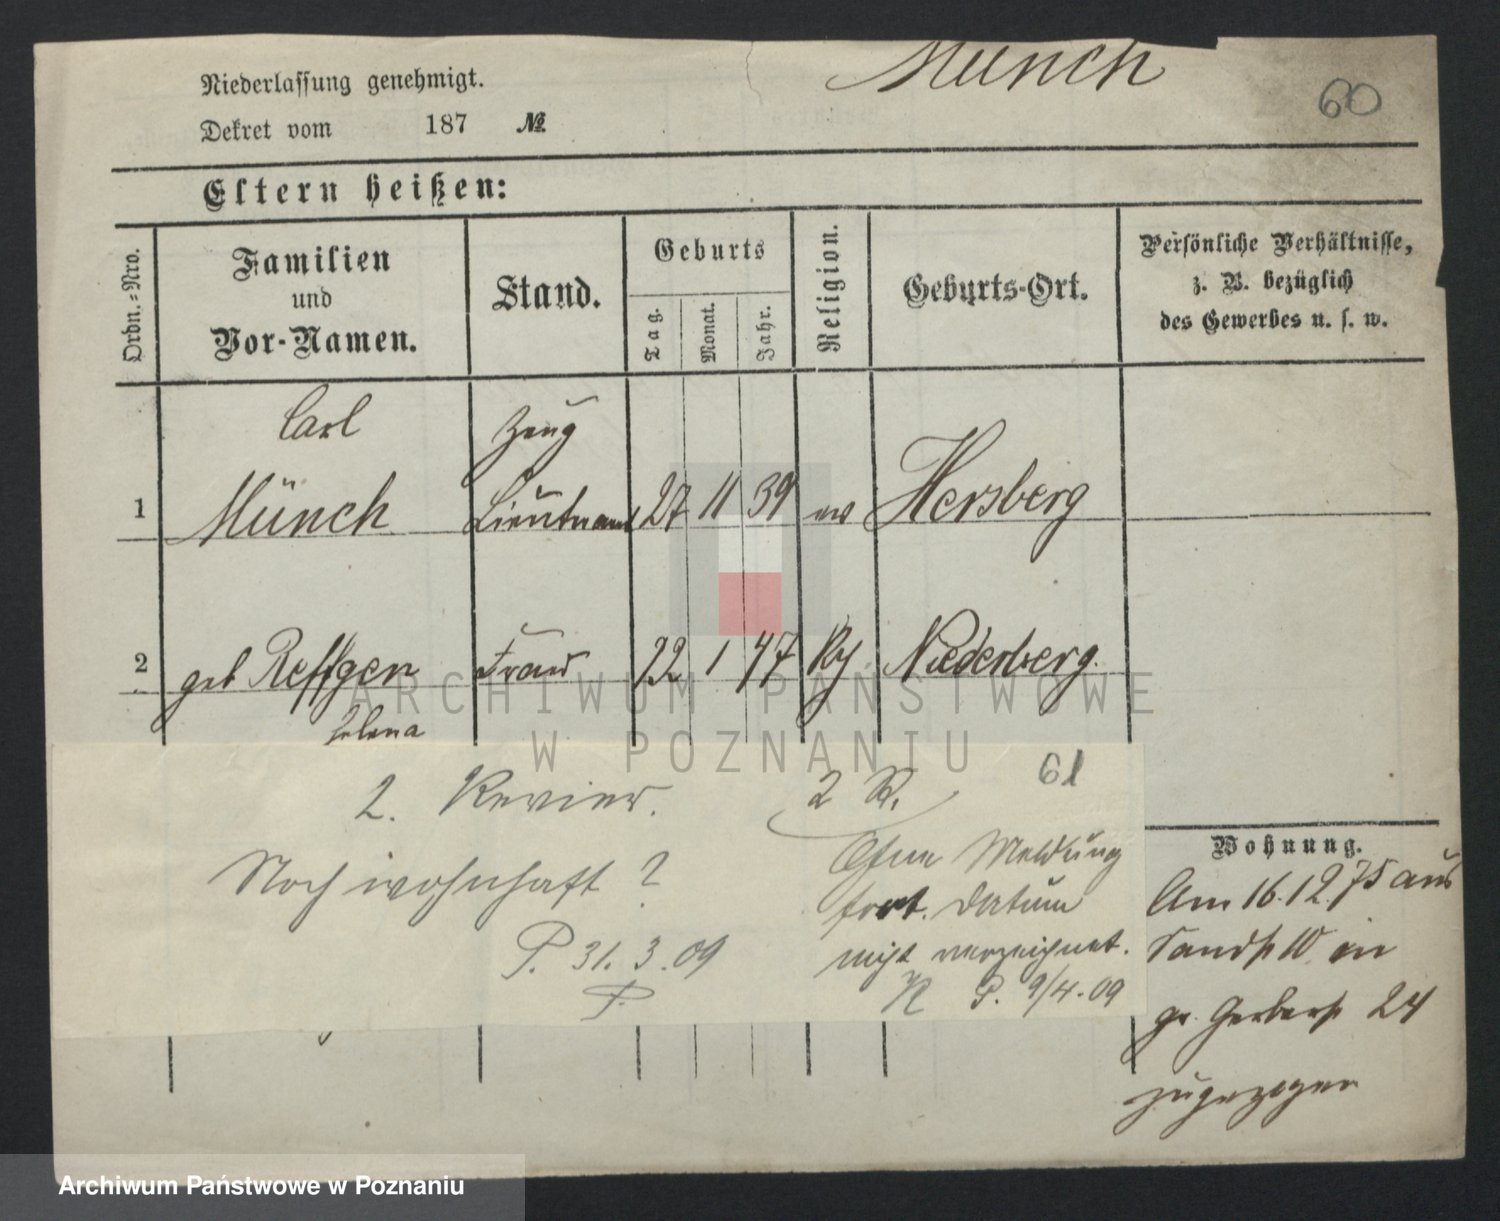 Münch
60
Niederlassung genehmigt.
Dekret vom 187 №
Eltern heißen:
Ordn.-Nro.
Familien
und
Vor-Namen.
Stand.
Geburts
Tag.
Monat.
Jahr.
Religion.
Geburts-Ort.
Persönliche Verhältnisse,
z. B. bezüglich
des Gewerbes u. s. w.
Carl Zeug
1 Münch Lieutnant 27 11 39 ev Hersberg
2 geb Reffgen Frau 22 1 47 Niederberg.
Helena
ARCHIWUM PAŃSTWOWE
W POZNANIU
2. Revier.
Noch wohnhaft?
P. 31.3.09
61
2 R.
Ohne Meldung
fort. Datum
nicht verzeichnet.
P. 9/4.09
Wohnung.
Am 16.12.75 aus
Sandstr 10 in
gr. Gerberstr 24
zugezogen
Archiwum Państwowe w Poznaniu